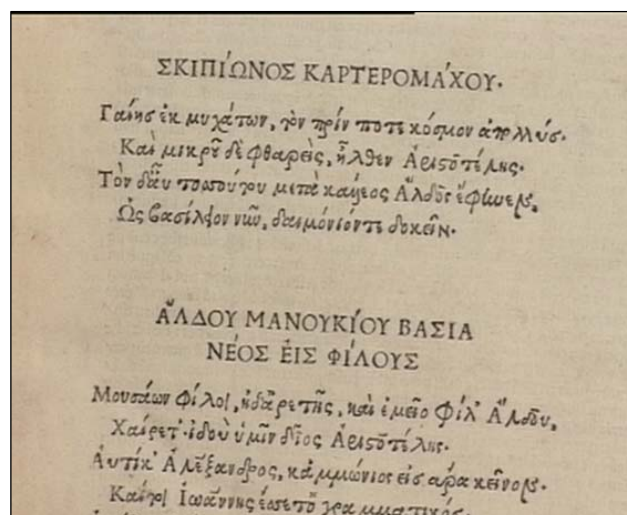 ΣΚΙΠΙΏΝΟΣ ΚΑΡΤΕΡΟΜΆΧΟΥ.
Γαίης ἐκ μυχάτων, τὸν πρίν ποτε κόσμον ἀπολλύς.
Καὶ μικροῦ δὲ φθαρεὶς, ἦλθεν Ἀριστοτέλης.
Τὸν δ' αὖ μετὰ Ἄλδος
Ὡς νῦν, δαιμόνιόντε δοκεῖν.
ἌΛΔΟΥ ΜΑΝΟΥΚΊΟΥ ΒΑΣΙΑ
ΝΈΟΣ ἘΙΣ ΦΊΛΟΥΣ
Μουσάων φίλοι, ἠδ' ἀρετῆς, καὶ ἐμεῖο φίλ' Ἄλδου,
Χαίρετ'· ἰδοὺ ὑμῖν δῖος Ἀριστοτέλης.
Ἀυτίκ' Ἀλέξανδρος, κἀμμώνιος εἰς
Ἰωάννης γραμματικός.